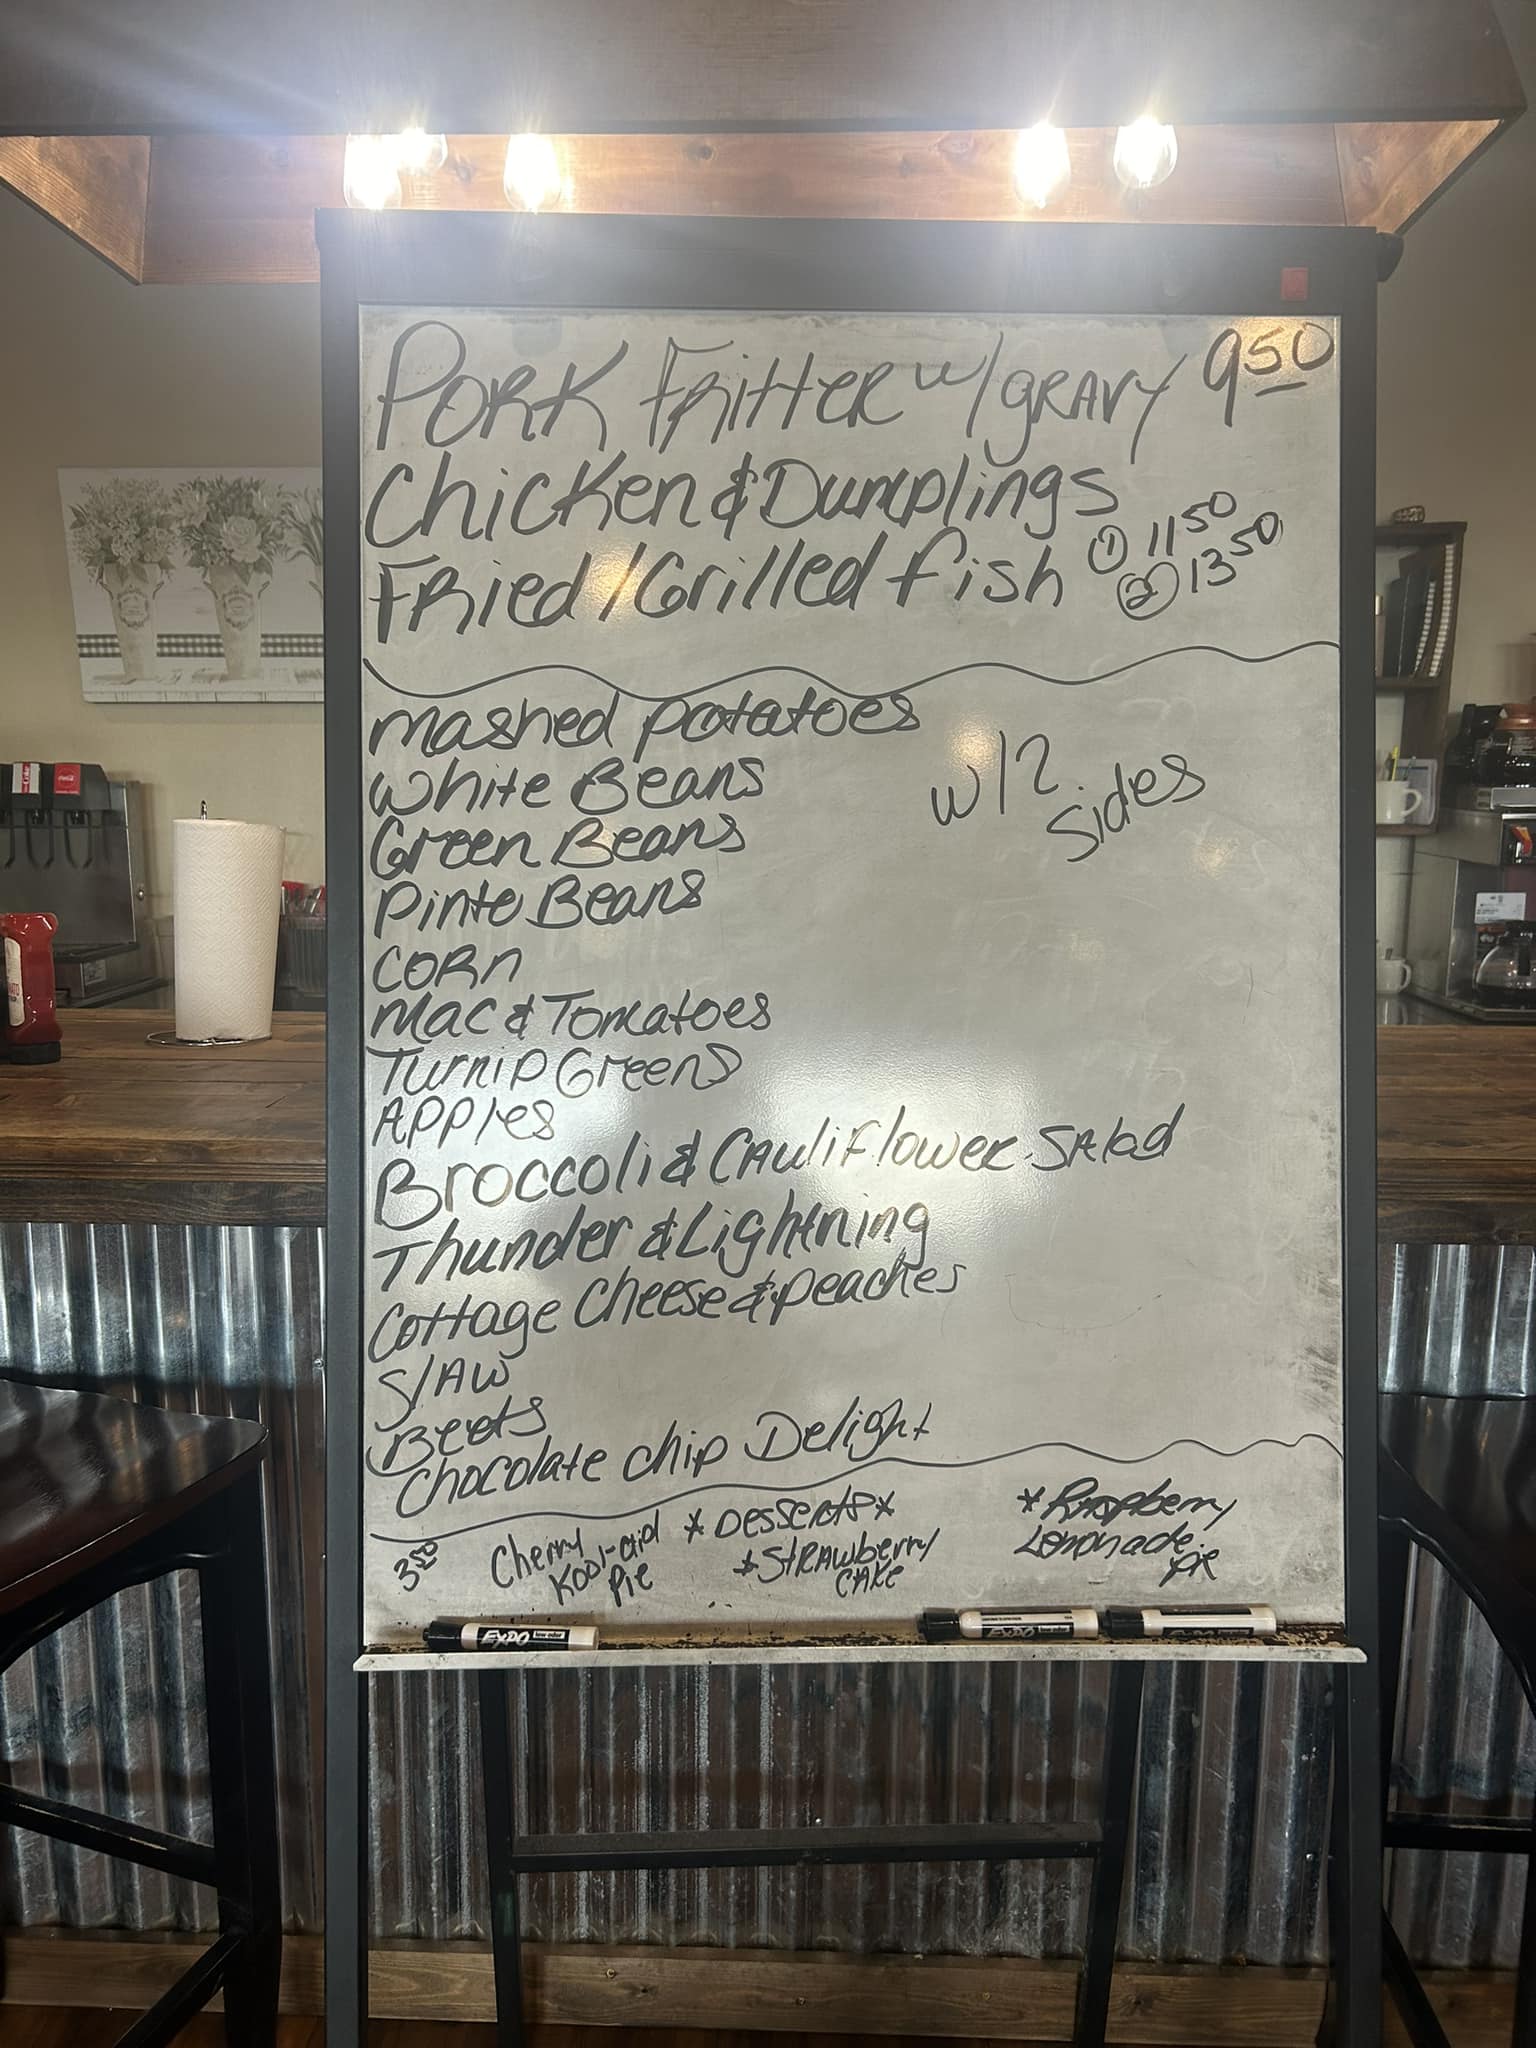 Pork Fritter w/gravy 9.50
Chicken & Dumplings
Fried/Grilled fish ① 11.50
② 13.50
mashed potatoes
w/2 Sides
White Beans
Green Beans
Pinto Beans
Corn
Mac & Tomatoes
Turnip Greens
Apples
Broccoli & Cauliflower Salad
Thunder & Lightning
Cottage Cheese & peaches
Slaw
Beets
Chocolate chip Delight
*Desserts*
3.50
Cherry
Kool-aid
Pie
*Strawberry
Cake
*Raspberry
Lemonade
pie
EXPO
EXPO